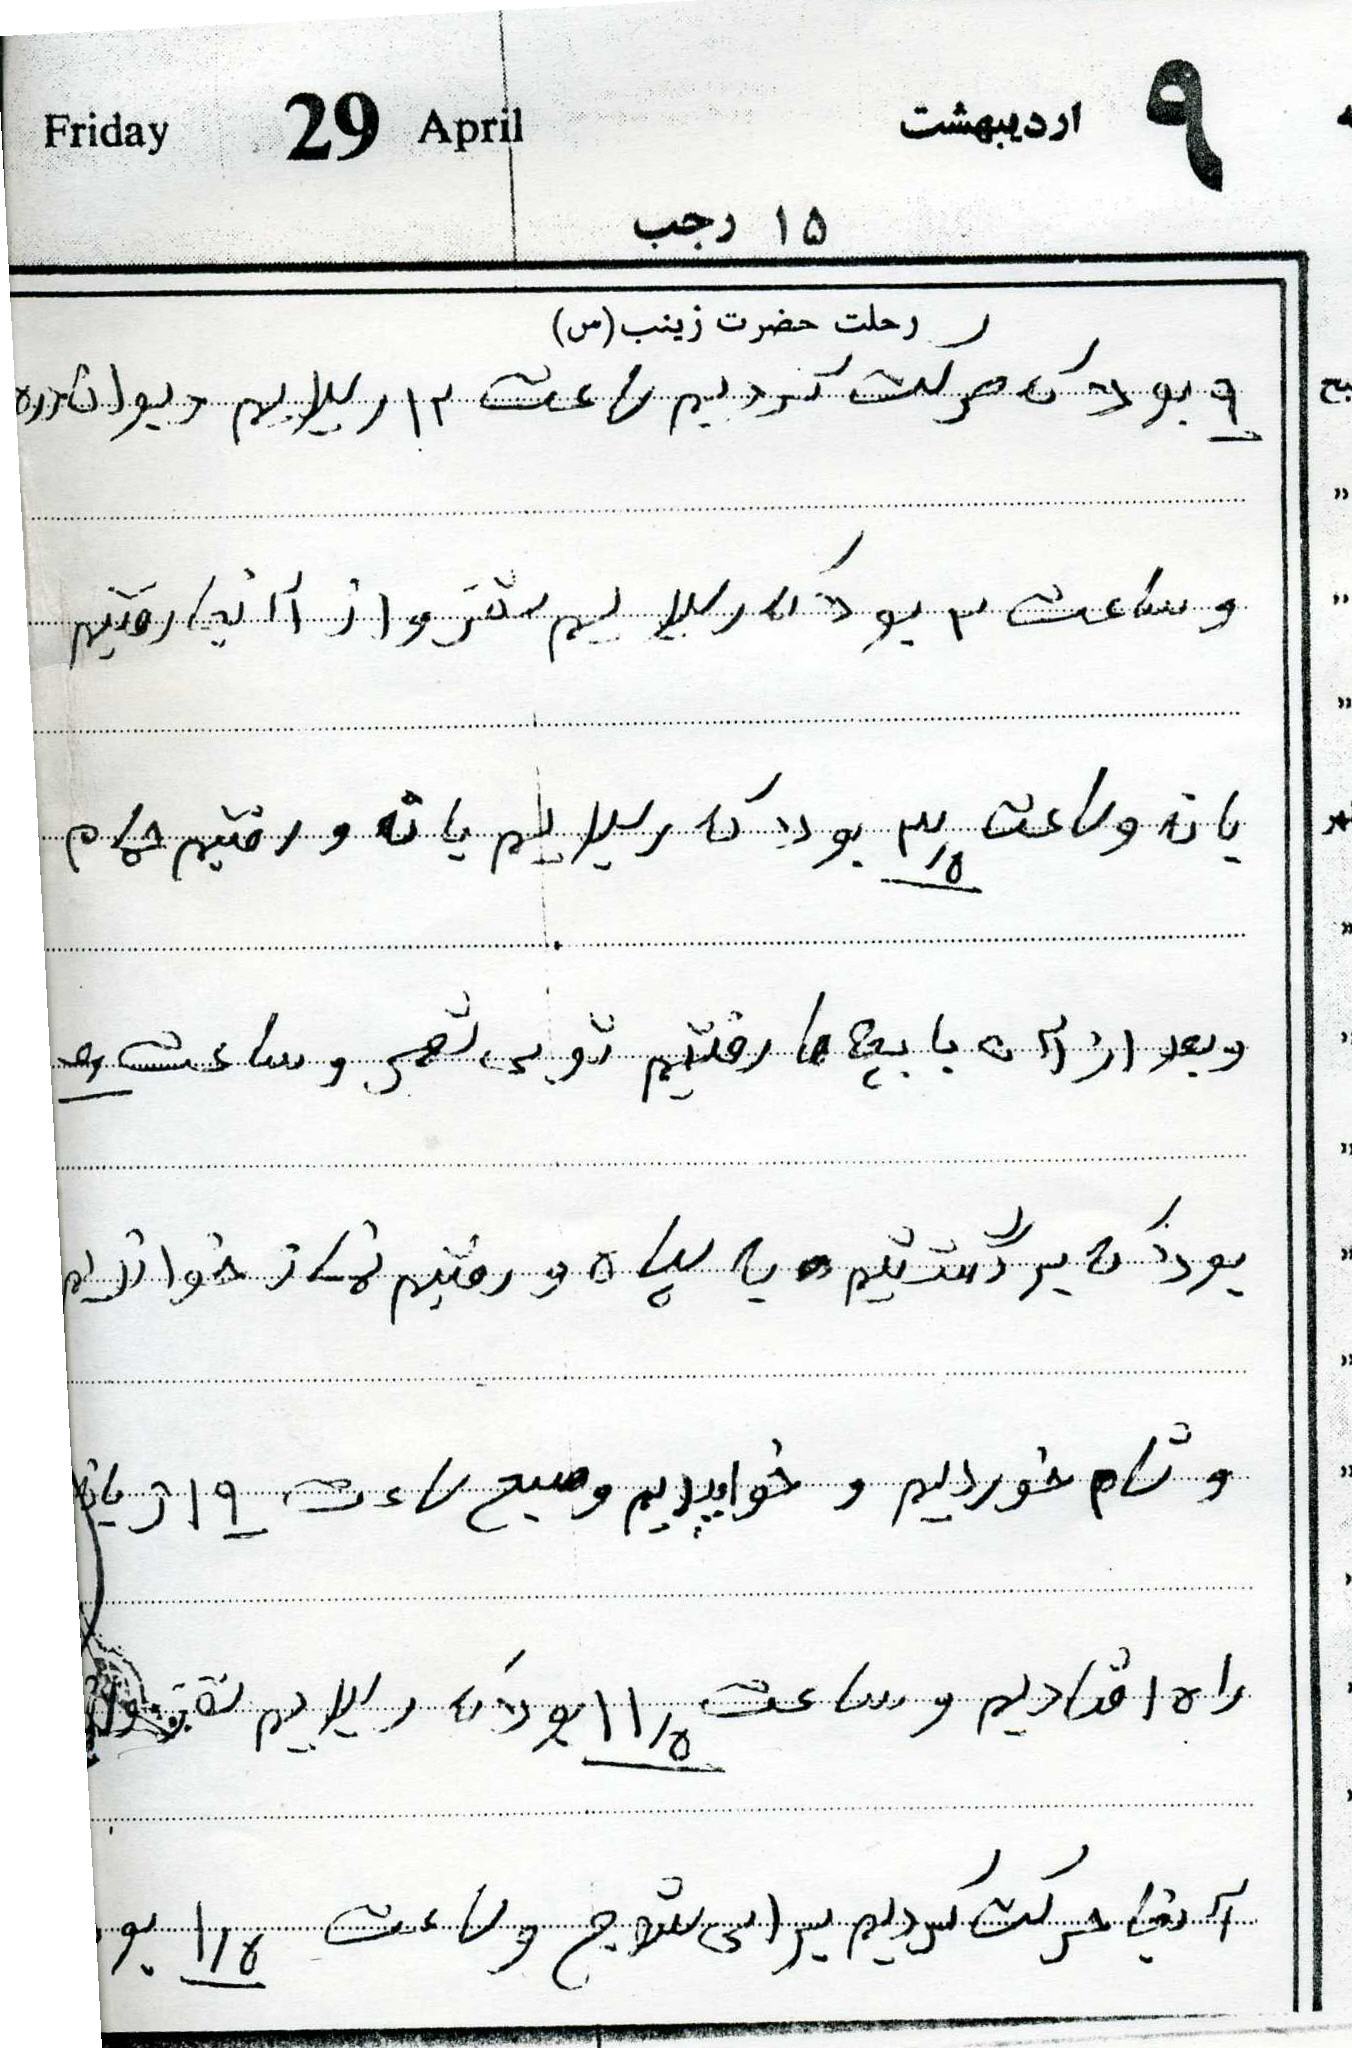 Friday 29 April ۹ اردیبهشت
۱۵ رجب
رحلت حضرت زینب (س)
۹ بود که حرکت کردیم ساعت ۱۲ رسیدیم دیواندره
و ساعت ۳ بود که رسیدیم سقز و از آنجا رفتیم
بانه و ساعت بود که رسیدیم بانه و رفتیم حمام
و بعد از آن با بچه ها رفتیم توی شهر و ساعت
بود که برگشتیم به سپاه و رفتیم نماز خواندیم
و شام خوردیم و خوابیدیم و صبح ساعت ۹ از بانه
راه افتادیم و ساعت ۱۱/۵ بود که رسیدیم سقز
آنجا حرکت کردیم برای سنندج و ساعت ۱/۵ بود